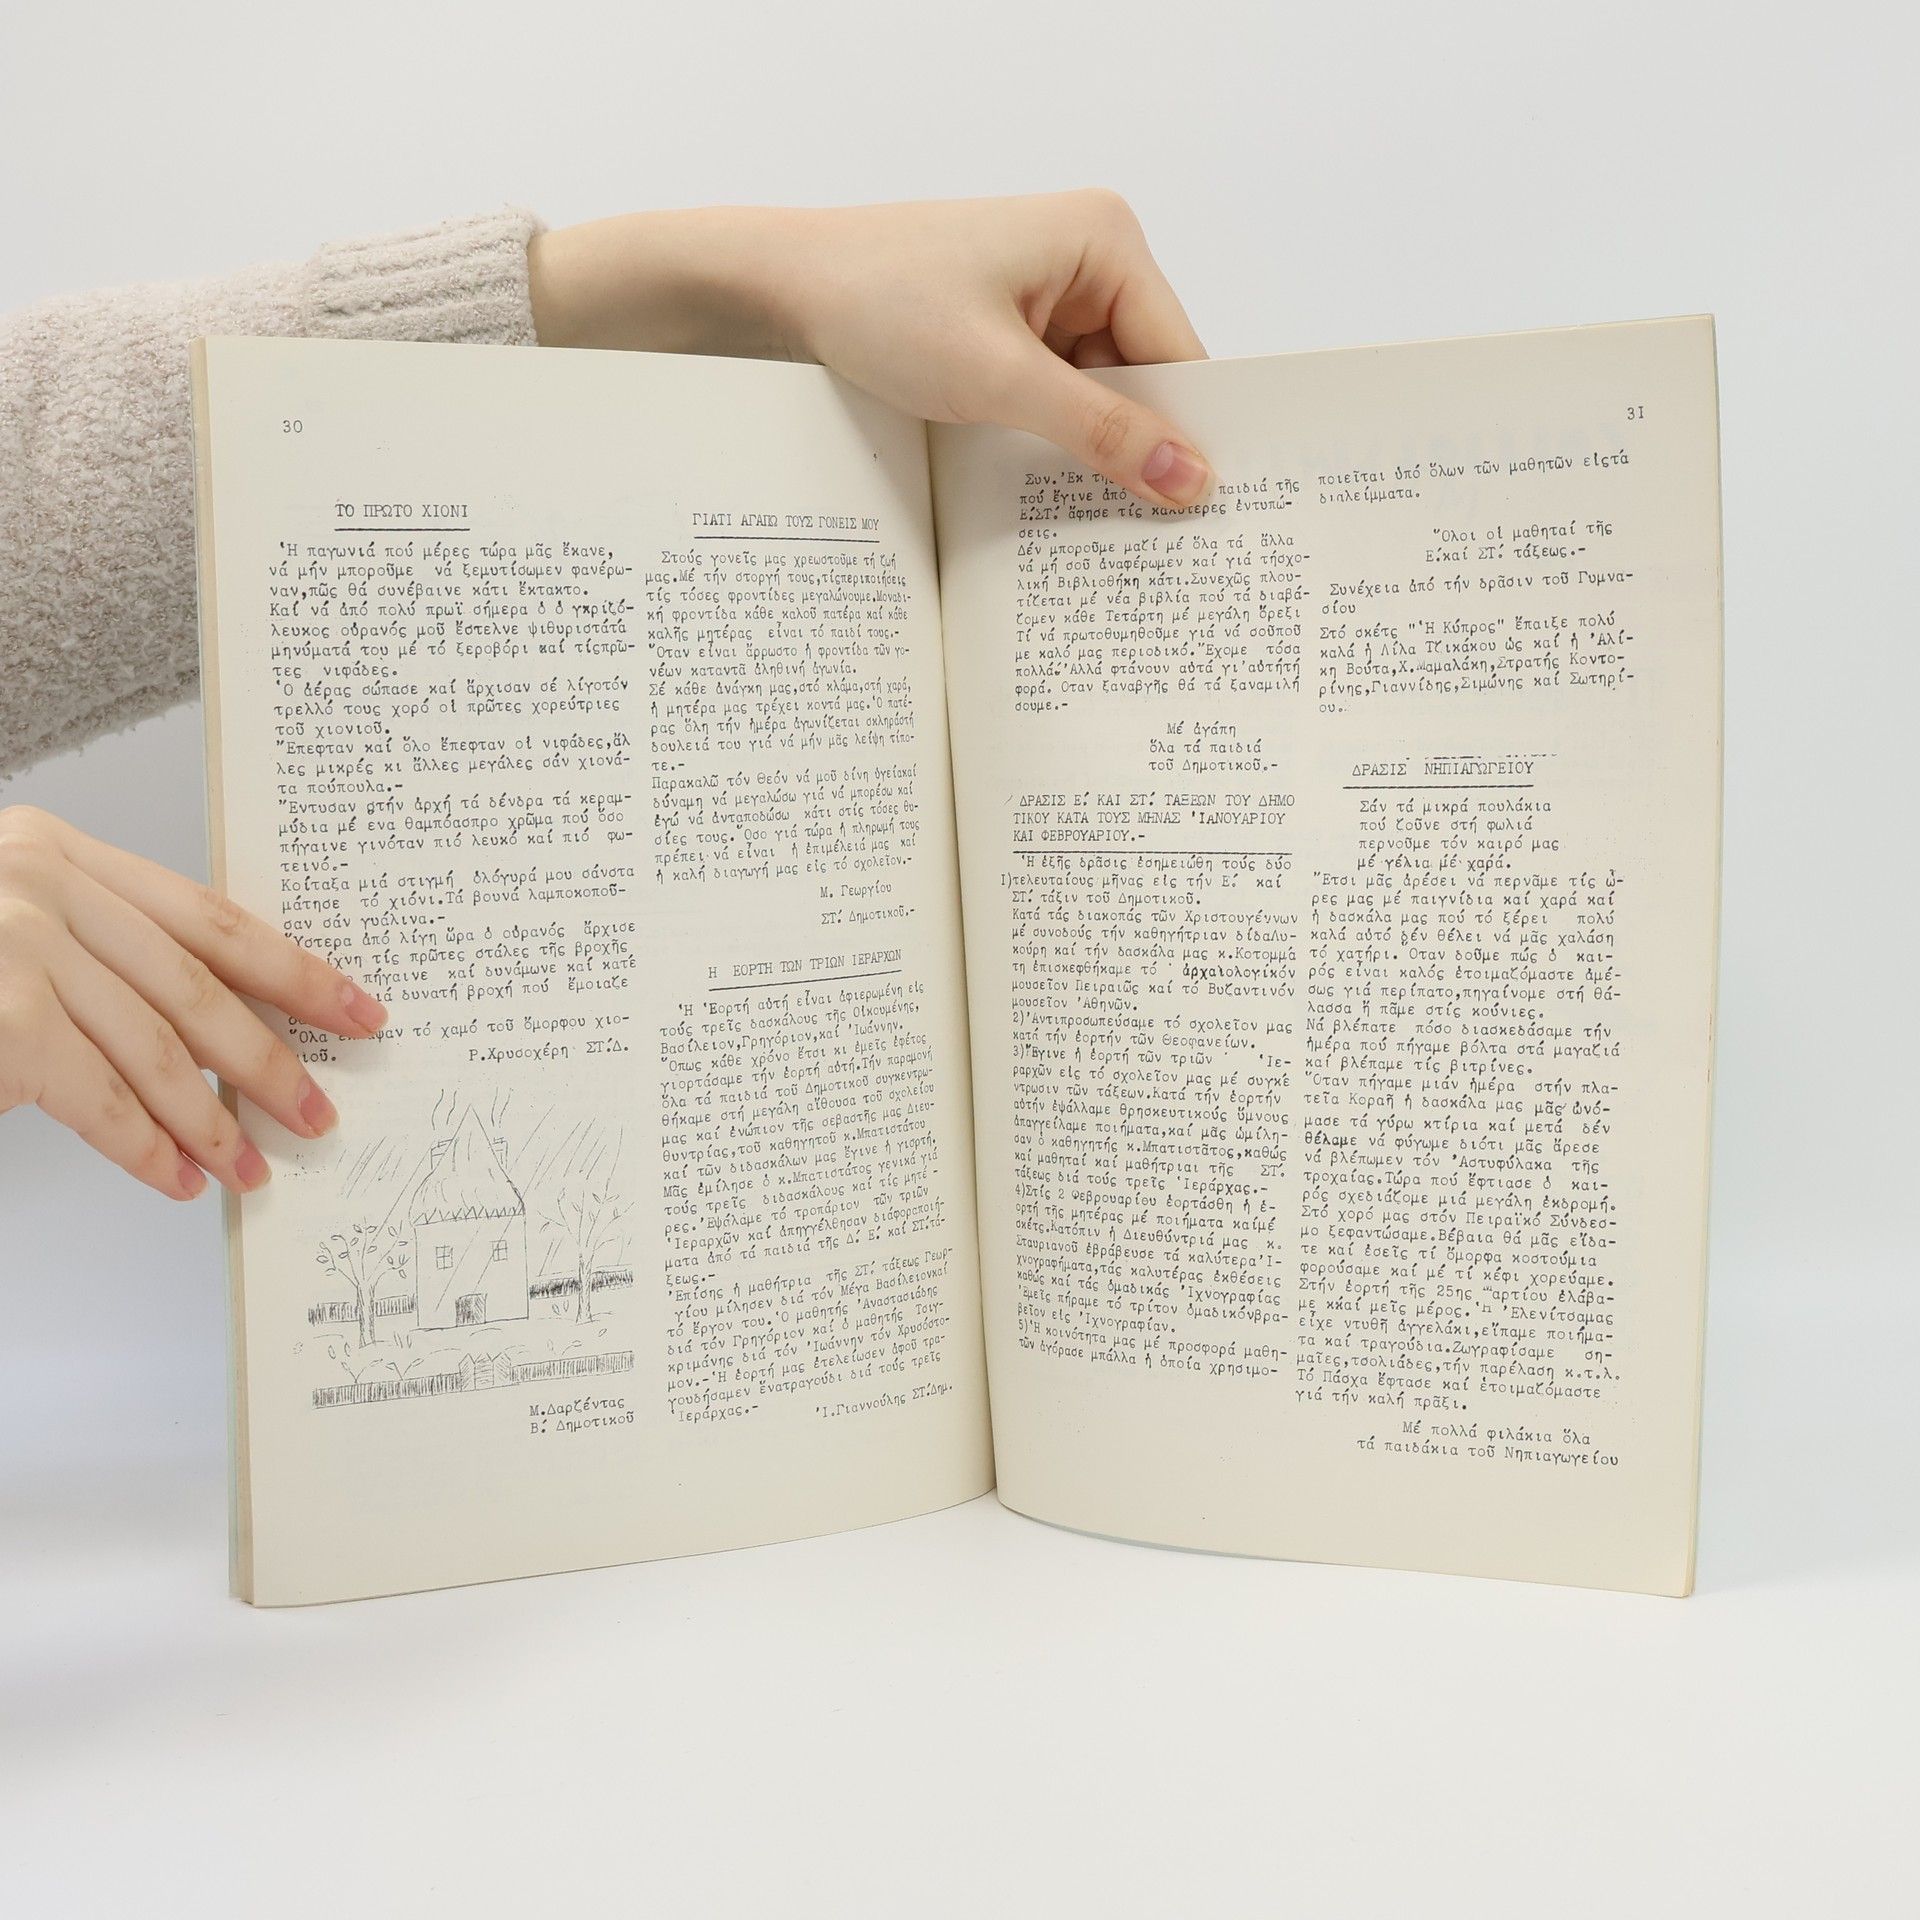 30
ΤΟ ΠΡΩΤΟ ΧΙΟΝΙ
Ἡ παγωνιά πού μέρες τώρα μᾶς ἔκανε,
νά μήν μποροῦμε νά ξεμυτίσωμεν φανέρω-
ναν,πῶς θά συνέβαινε κάτι ἔκτακτο.
Καί νά ἀπό πολύ πρωϊ σήμερα ὁ ὁ γκριζό-
λευκος οὐρανός μοῦ ἔστελνε ψιθυριστάτά
μηνύματά του μέ τό ξεροβόρι καί τίςπρῶ-
τες νιφάδες.
Ὁ ἀέρας σώπασε καί ἄρχισαν σέ λίγοτόν
τρελλό τους χορό οἱ πρῶτες χορεύτριες
τοῦ χιονιοῦ.
Ἔπεφταν καί ὅλο ἔπεφταν οἱ νιφάδες,ἄλ
λες μικρές κι ἄλλες μεγάλες σάν χιονά-
τα πούπουλα.-
Ἔντυσαν στήν ἀρχή τά δένδρα τά κεραμ-
μύδια μέ ενα θαμπόασπρο χρῶμα πού ὅσο
πήγαινε γινόταν πιό λευκό καί πιό φω-
τεινό.-
Κοίταξα μιά στιγμή ὁλόγυρά μου σάνστα
μάτησε τό χιόνι.Τά βουνά λαμποκοποῦ-
σαν σάν γυάλινα.-
Ὕστερα ἀπό λίγη ὥρα ὁ οὐρανός ἄρχισε
τίς πρῶτες στάλες τῆς βροχῆς
πήγαινε καί δυνάμωνε καί κατέ
δυνατή βροχή πού ἔμοιαζε
Ὅλα τό χαμό τοῦ ὄμορφου χιο-
νιοῦ.
Ρ.Χρυσοχέρη ΣΤ.Δ.
Μ.Δαρζέντας
Β.΄ Δημοτικοῦ
ΓΙΑΤΙ ΑΓΑΠΩ ΤΟΥΣ ΓΟΝΕΙΣ ΜΟΥ
Στούς γονεῖς μας χρεωστοῦμε τή ζωή
μας.Μέ τήν στοργή τους,τίςπεριποιήσεις
τίς τόσες φροντίδες μεγαλώνουμε.Μοναδι-
κή φροντίδα κάθε καλοῦ πατέρα καί κάθε
καλῆς μητέρας εἶναι τό παιδί τους.-
Ὅταν εἶναι ἄρρωστο ἡ φροντίδα τῶν γο-
νέων καταντᾶ ἀληθινή ἀγωνία.
Σέ κάθε ἀνάγκη μας,στό κλάμα,στή χαρά,
ἡ μητέρα μας τρέχει κοντά μας.Ὁ πατέ-
ρας ὅλη τήν ἡμέρα ἀγωνίζεται σκληράστή
δουλειά του γιά νά μήν μᾶς λείψη τίπο-
τε.-
Παρακαλῶ τόν Θεόν νά μοῦ δίνη ὑγείακαί
δύναμη νά μεγαλώσω γιά νά μπορέσω καί
ἐγώ νά ἀνταποδώσω κάτι στίς τόσες θυ-
σίες τους.Ὅσο γιά τώρα ἡ πληρωμή τους
πρέπει νά εἶναι ἡ ἐπιμέλειά μας καί
ἡ καλή διαγωγή μας εἰς τό σχολεῖον.-
Μ. Γεωργίου
ΣΤ.΄ Δημοτικοῦ.-
Η ΕΟΡΤΗ ΤΩΝ ΤΡΙΩΝ ΙΕΡΑΡΧΩΝ
Ἡ Ἑορτή αὐτή εἶναι ἀφιερωμένη εἰς
τούς τρεῖς δασκάλους τῆς Οἰκουμένης,
Βασίλειον,Γρηγόριον,καί Ἰωάννην.
Ὅπως κάθε χρόνο ἔτσι κι ἐμεῖς ἐφέτος
γιορτάσαμε τήν ἑορτή αὐτή.Τήν παραμονή
ὅλα τά παιδιά τοῦ Δημοτικοῦ συγκεντρω-
θήκαμε στή μεγάλη αἴθουσα τοῦ σχολείου
μας καί ἐνώπιον τῆς σεβαστῆς μας Διευ-
θυντρίας,τοῦ καθηγητοῦ κ.Μπατιστάτου
καί τῶν διδασκάλων μας ἔγινε ἡ γιορτή.
Μᾶς ἐμίλησε ὁ κ.Μπατιστάτος γενικά γιά
τούς τρεῖς διδασκάλους καί τίς μητέ-
ρες.Ἐψάλαμε τό τροπάριον τῶν τριῶν
Ἱεραρχῶν καί ἀπηγγέλθησαν διάφοραποιή-
ματα ἀπό τά παιδιά τῆς Δ.΄ Ε.΄ καί ΣΤ.΄τά-
ξεως.-
Ἐπίσης ἡ μαθήτρια τῆς ΣΤ.΄ τάξεως Γεωρ-
γίου μίλησεν διά τόν Μέγα Βασίλειονκαί
τό ἔργον του.Ὁ μαθητής Ἀναστασιάδης
διά τόν Γρηγόριον καί ὁ μαθητής Τσιγ-
κριμάνης διά τόν Ἰωάννην τόν Χρυσόστο-
μον.-Ἡ ἑορτή μας ἐτελείωσεν ἀφοῦ τρα-
γουδήσαμεν ἕνατραγούδι διά τούς τρεῖς
Ἱεράρχας.-
Ἰ.Γιαννούλης ΣΤ.΄Δημ.
31
Συν.Ἐκ
πού ἔγινε ἀπό παιδιά τῆς
Ε.΄ΣΤ.΄ ἄφησε τίς καλύτερες ἐντυπώ-
σεις.
Δέν μποροῦμε μαζί μέ ὅλα τά ἄλλα
νά μή σοῦ ἀναφέρωμεν καί γιά τήσχο-
λική Βιβλιοθήκη κάτι.Συνεχῶς πλου-
τίζεται μέ νέα βιβλία πού τά διαβά-
ζομεν κάθε Τετάρτη μέ μεγάλη ὄρεξι
Τί νά πρωτοθυμηθοῦμε γιά νά σοῦποῦ
με καλό μας περιοδικό.Ἔχομε τόσα
πολλά.Ἀλλά φτάνουν αὐτά γι'αὐτήτή
φορά. Οταν ξαναβγῆς θά τά ξαναμιλή
σουμε.-
Μέ ἀγάπη
ὅλα τά παιδιά
τοῦ Δημοτικοῦ.-
ΔΡΑΣΙΣ Ε.΄ ΚΑΙ ΣΤ.΄ ΤΑΞΕΩΝ ΤΟΥ ΔΗΜΟ
ΤΙΚΟΥ ΚΑΤΑ ΤΟΥΣ ΜΗΝΑΣ ἸΑΝΟΥΑΡΙΟΥ
ΚΑΙ ΦΕΒΡΟΥΑΡΙΟΥ.-
Ἡ ἑξῆς δρᾶσις ἐσημειώθη τούς δύο
1)τελευταίους μῆνας εἰς τήν Ε.΄ καί
ΣΤ.΄ τάξιν τοῦ Δημοτικοῦ.
Κατά τάς διακοπάς τῶν Χριστουγέννων
μέ συνοδούς τήν καθηγήτριαν δίδαΛυ-
κούρη καί τήν δασκάλα μας κ.Κοτομμά
τη ἐπισκεφθήκαμε τό ἀρχαιολογικόν
μουσεῖον Πειραιῶς καί τό Βυζαντινόν
μουσεῖον Ἀθηνῶν.
2)Ἀντιπροσωπεύσαμε τό σχολεῖον μας
κατά τήν ἑορτήν τῶν Θεοφανείων.
3)Ἔγινε ἡ ἑορτή τῶν τριῶν Ἱε-
ραρχῶν εἰς τό σχολεῖον μας μέ συγκέ
ντρωσιν τῶν τάξεων.Κατά τήν ἑορτήν
αὐτήν ἐψάλλαμε θρησκευτικούς ὕμνους
ἀπαγγείλαμε ποιήματα,καί μᾶς ὡμίλη-
σαν ὁ καθηγητής κ.Μπατιστᾶτος,καθώς
καί μαθηταί καί μαθήτριαι τῆς ΣΤ.΄
τάξεως διά τούς τρεῖς Ἱεράρχας.-
4)Στίς 2 Φεβρουαρίου ἑορτάσθη ἡ ἑ-
ορτή τῆς μητέρας μέ ποιήματα καίμέ
σκέτς.Κατόπιν ἡ Διευθύντριά μας κ.
Σταυριανοῦ ἐβράβευσε τά καλύτερα Ἰ-
χνογραφήματα,τάς καλυτέρας ἐκθέσεις
καθώς καί τάς ὁμαδικάς Ἰχνογραφίας
Ἐμεῖς πήραμε τό τρίτον ὁμαδικόνβρα-
βεῖον εἰς Ἰχνογραφίαν.
5)Ἡ κοινότητα μας μέ προσφορά μαθη-
τῶν ἀγόρασε μπάλλα ἡ ὁποία χρησιμο-
ποιεῖται ὑπό ὅλων τῶν μαθητῶν εἰςτά
διαλείμματα.
Ὅλοι οἱ μαθηταί τῆς
Ε.΄καί ΣΤ.΄ τάξεως.-
Συνέχεια ἀπό τήν δρᾶσιν τοῦ Γυμνα-
σίου
Στό σκέτς "Ἡ Κύπρος" ἔπαιξε πολύ
καλά ἡ Λίλα Τζικάκου ὡς καί ἡ Ἀλί-
κη Βούτα,Χ.Μαμαλάκη,Στρατής Κοντο-
ρίνης,Γιαννίδης,Σιμώνης καί Σωτηρί-
ου.
ΔΡΑΣΙΣ ΝΗΠΙΑΓΩΓΕΙΟΥ
Σάν τά μικρά πουλάκια
πού ζοῦνε στή φωλιά
περνοῦμε τόν καιρό μας
μέ γέλια μέ χαρά.
Ἔτσι μᾶς ἀρέσει νά περνᾶμε τίς ὧ-
ρες μας μέ παιγνίδια καί χαρά καί
ἡ δασκάλα μας πού τό ξέρει πολύ
καλά αὐτό δέν θέλει νά μᾶς χαλάση
τό χατήρι. Οταν δοῦμε πώς ὁ και-
ρός εἶναι καλός ἑτοιμαζόμαστε ἀμέ-
σως γιά περίπατο,πηγαίνομε στή θά-
λασσα ἤ πᾶμε στίς κούνιες.
Νά βλέπατε πόσο διασκεδάσαμε τήν
ἡμέρα πού πήγαμε βόλτα στά μαγαζιά
καί βλέπαμε τίς βιτρίνες.
Ὅταν πήγαμε μιάν ἡμέρα στήν πλα-
τεῖα Κοραῆ ἡ δασκάλα μας μᾶς ὠνό-
μασε τά γύρω κτίρια καί μετά δέν
θέλαμε νά φύγωμε διότι μᾶς ἄρεσε
νά βλέπωμεν τόν Ἀστυφύλακα τῆς
τροχαίας.Τώρα πού ἔφτιασε ὁ και-
ρός σχεδιάζομε μιά μεγάλη ἐκδρομή.
Στό χορό μας στόν Πειραϊκό Σύνδεσ-
μο ξεφαντώσαμε.Βέβαια θά μᾶς εἴδα-
τε καί ἐσεῖς τί ὄμορφα κοστούμια
φορούσαμε καί μέ τί κέφι χορεύαμε.
Στήν ἑορτή τῆς 25ης Μαρτίου ἐλάβα-
με κκαί μεῖς μέρος.Ἡ Ἐλενίτσαμας
εἶχε ντυθῆ ἀγγελάκι,εἴπαμε ποιήμα-
τα καί τραγούδια.Ζωγραφίσαμε ση-
μαῖες,τσολιάδες,τήν παρέλαση κ.τ.λ.
Τό Πάσχα ἔφτασε καί ἑτοιμαζόμαστε
γιά τήν καλή πρᾶξι.
Μέ πολλά φιλάκια ὅλα
τά παιδάκια τοῦ Νηπιαγωγείου